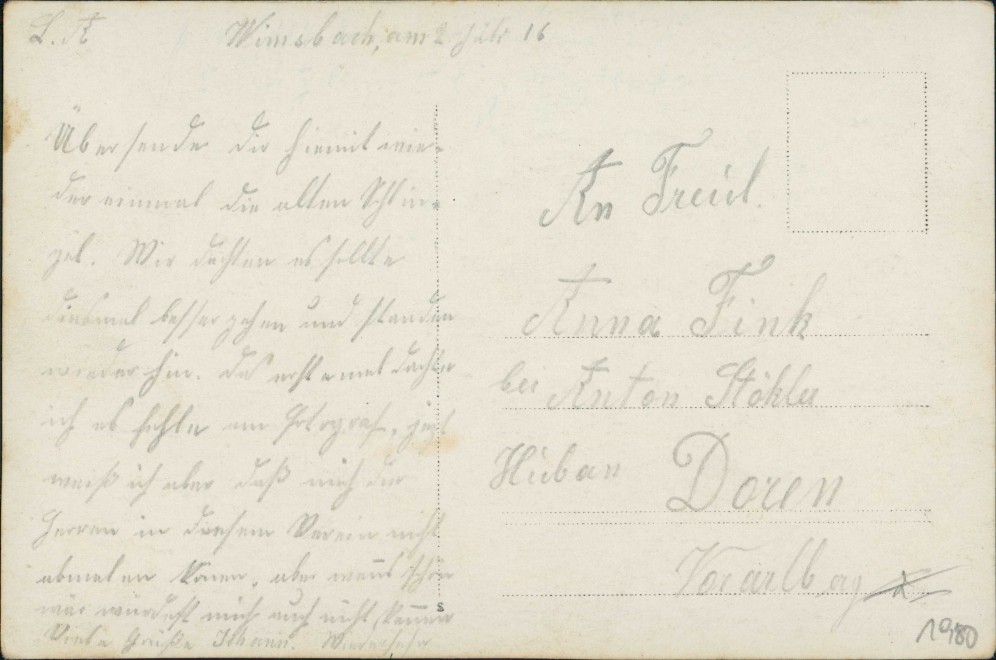 L. A
Wimsbach, am 2 Juli 16
Übersende dir hiemit wie-
der einmal die alten Schlin-
gel. Wir dachten es sollte
diesmal besser gehen und standen
wieder hin. Das erste mal dachte
ich es fehle am Fotograf, jetzt
weiß ich aber daß mich die
Herren in diesem Verein nicht
abmalen können, aber wenns schön
wär würdest mich auch nicht kennen
Viele Grüße Johann. Wiedersehn
An Freul.
Anna Fink
bei Anton Stökler
Huban Doren
Vorarlberg
1980